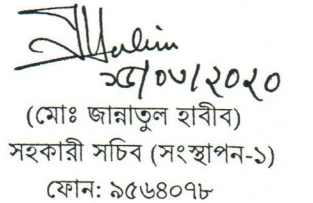 ২৫/০৬/২০২০
(মোঃ জান্নাতুল হাবীব)
সহকারী সচিব (সংস্থাপন-১)
ফোন: ৯৫৬৪০৭৮